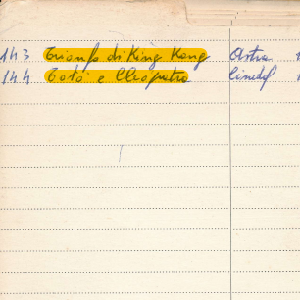 143 Trionfo di King Kong Astra 1
144 Totò e Cleopatra Cinedif 1